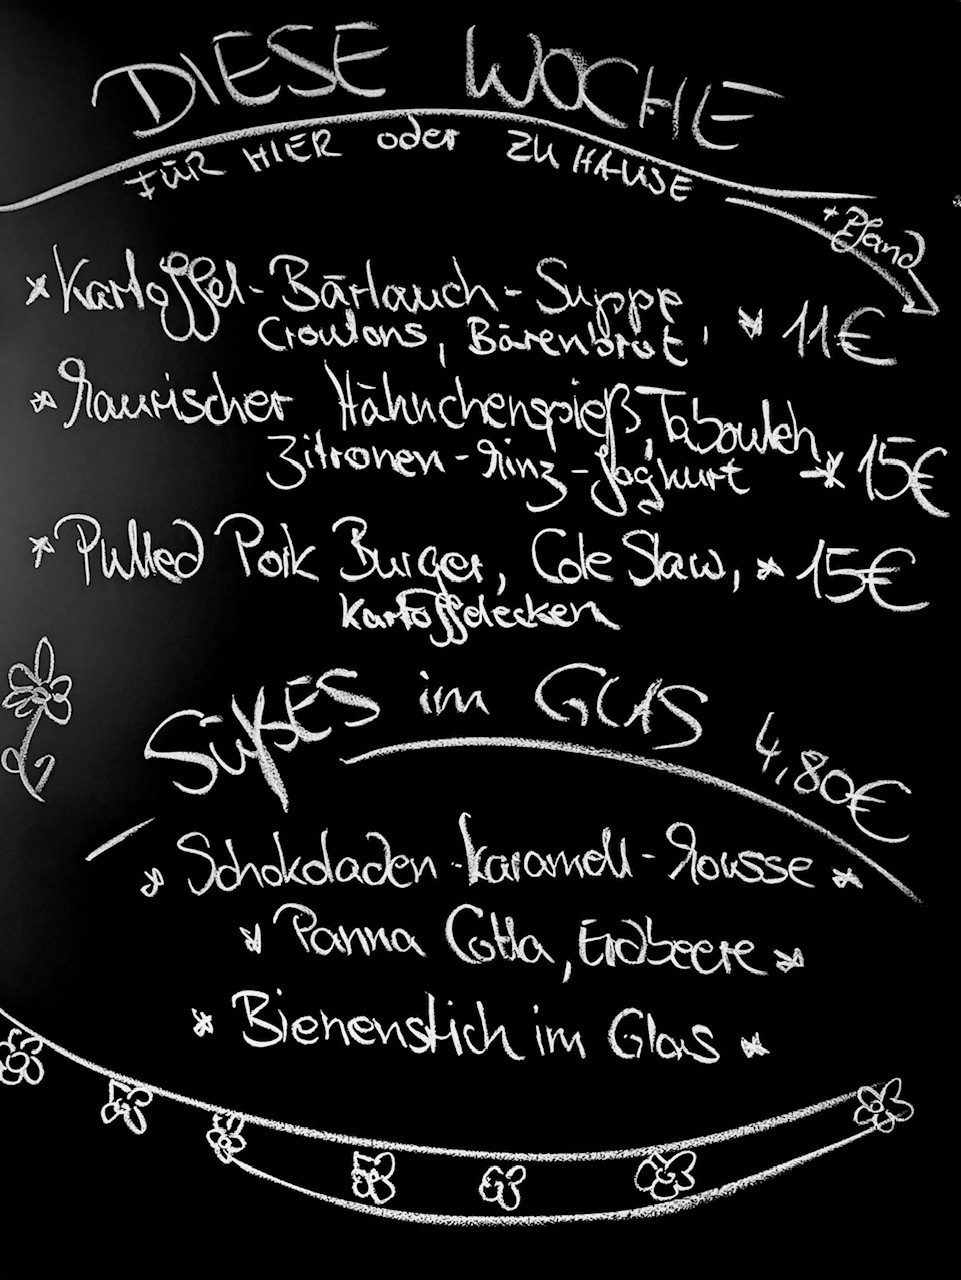 DIESE WOCHE
FÜR HIER oder ZU HAUSE
+ Pfand
* Kartoffel-Bärlauch-Suppe
Croutons, Bärenbrot, * 11€
* Maurischer Hähnchenspieß, Tabouleh,
Zitronen-Minz-Joghurt * 15€
* Pulled Pork Burger, Cole Slaw, * 15€
Kartoffelecken
SÜßES im GLAS 4,80€
* Schokoladen-Karamell-Mousse *
* Panna Cotta, Erdbeere *
* Bienenstich im Glas *